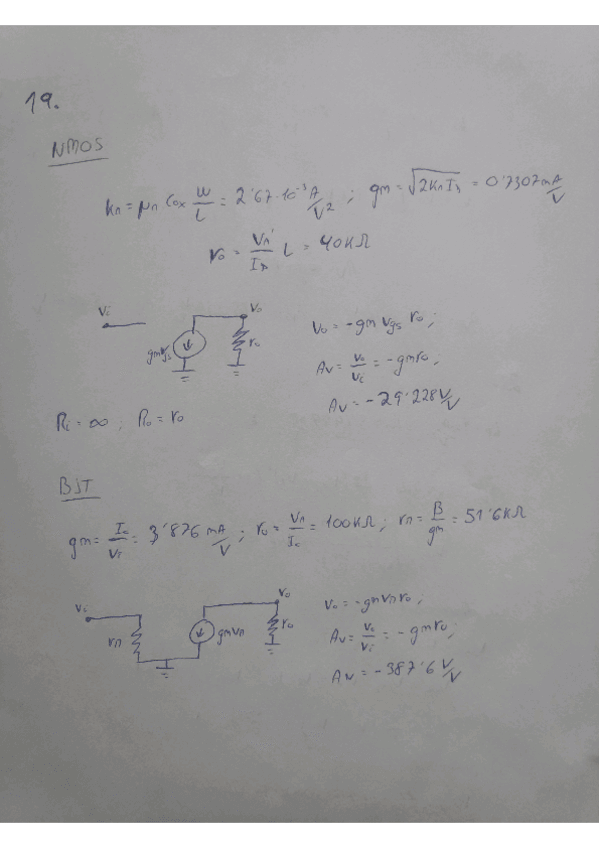 19.
NMOS
kn = μn Cox W/L = 2'67·10⁻³ A/V² ; gm = √2KnI_D = 0'7307 mA/V
ro = V_A'/I_D L = 40KΩ
Vi
Vo
gmvgs
ro
Vo = -gm Vgs ro;
Av = vo/vi = -gmro;
Av = -29'228 V/V
Ri = ∞ ; Ro = ro
BJT
gm = Ic/VT = 3'876 mA/V ; ro = VA/Ic = 100KΩ ; rπ = β/gm = 51'6KΩ
Vi
Vo
rπ
gmvπ
ro
Vo = -gmvπro;
Av = vo/vi = -gmro;
Av = -387'6 V/V